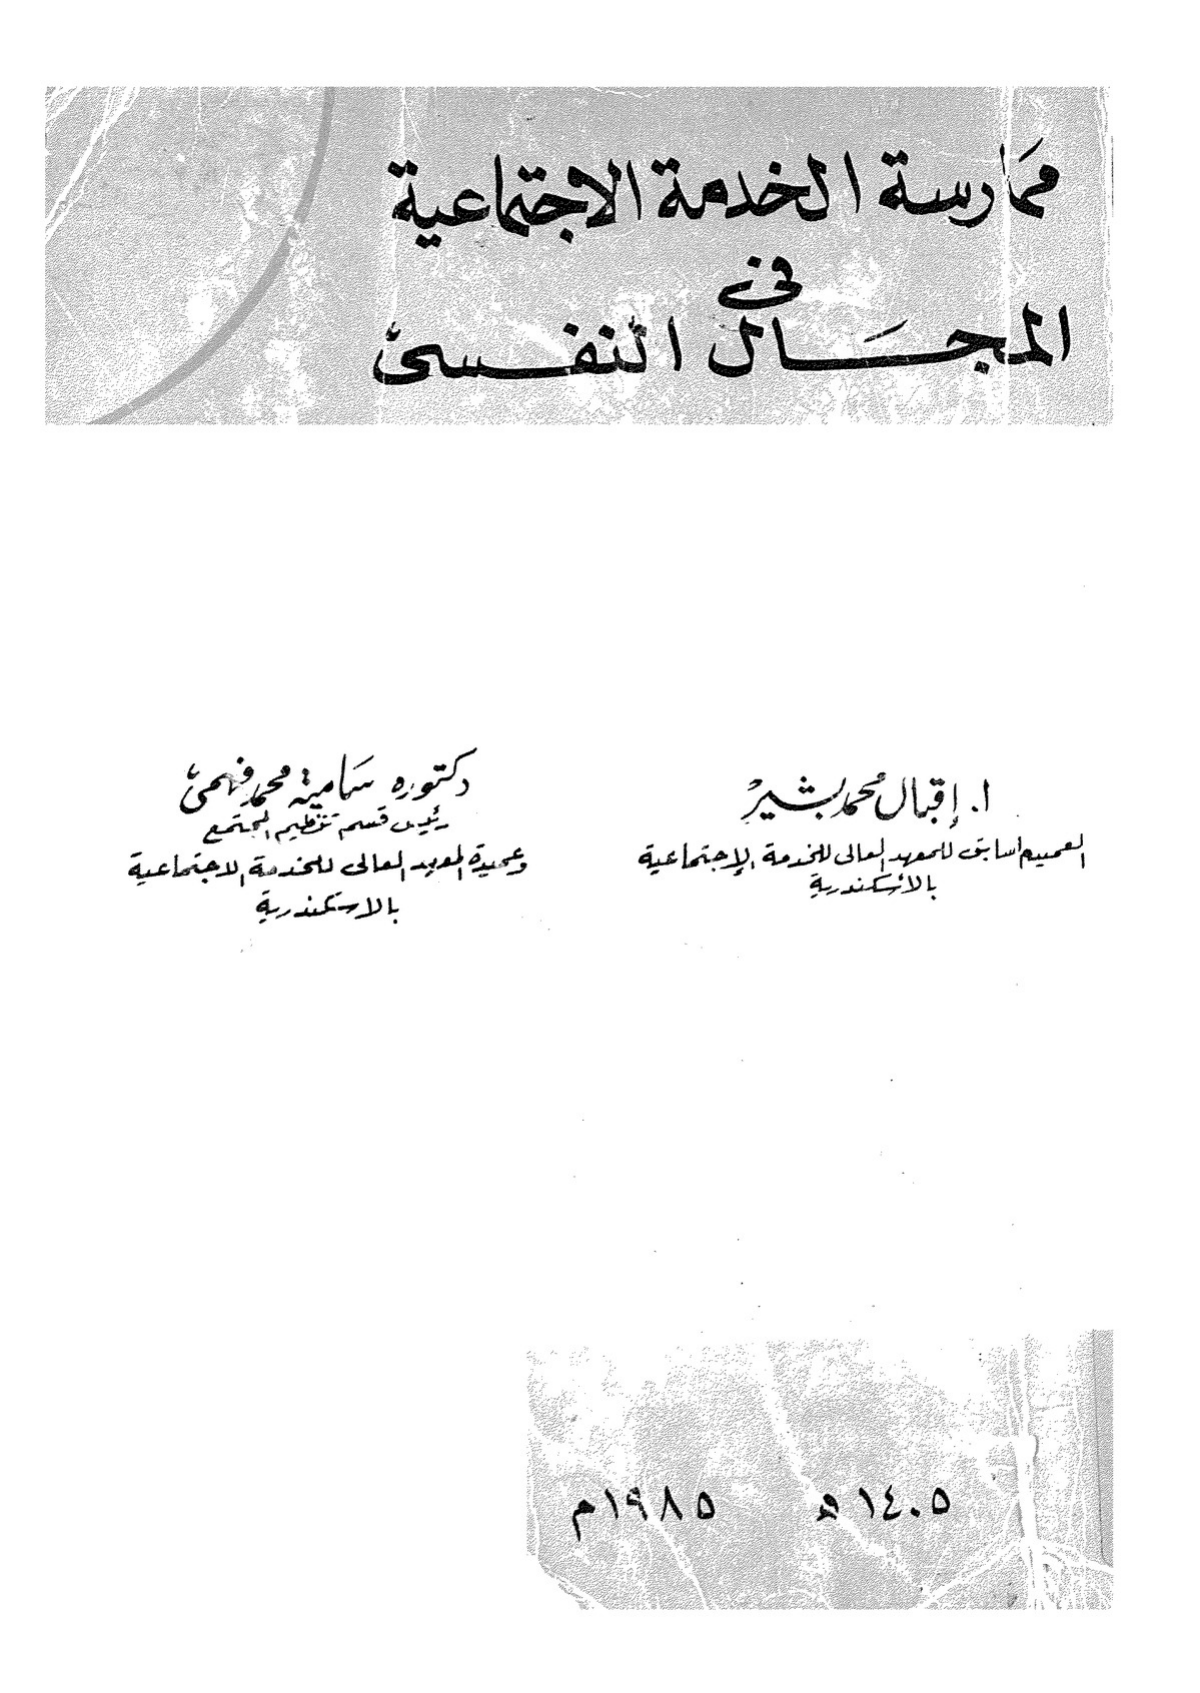 ممارسة الخدمة الاجتماعية
فى
المجال النفسى
ا. إقبال محمد بشير
العميد السابق للمعهد العالى للخدمة الإجتماعية
بالأسكندرية
دكتوره سامية محمد فهمى
رئيس قسم تنظيم المجتمع
وعميدة المعهد العالى للخدمة الاجتماعية
بالاسكندرية
١٤٠٥ هـ ١٩٨٥م